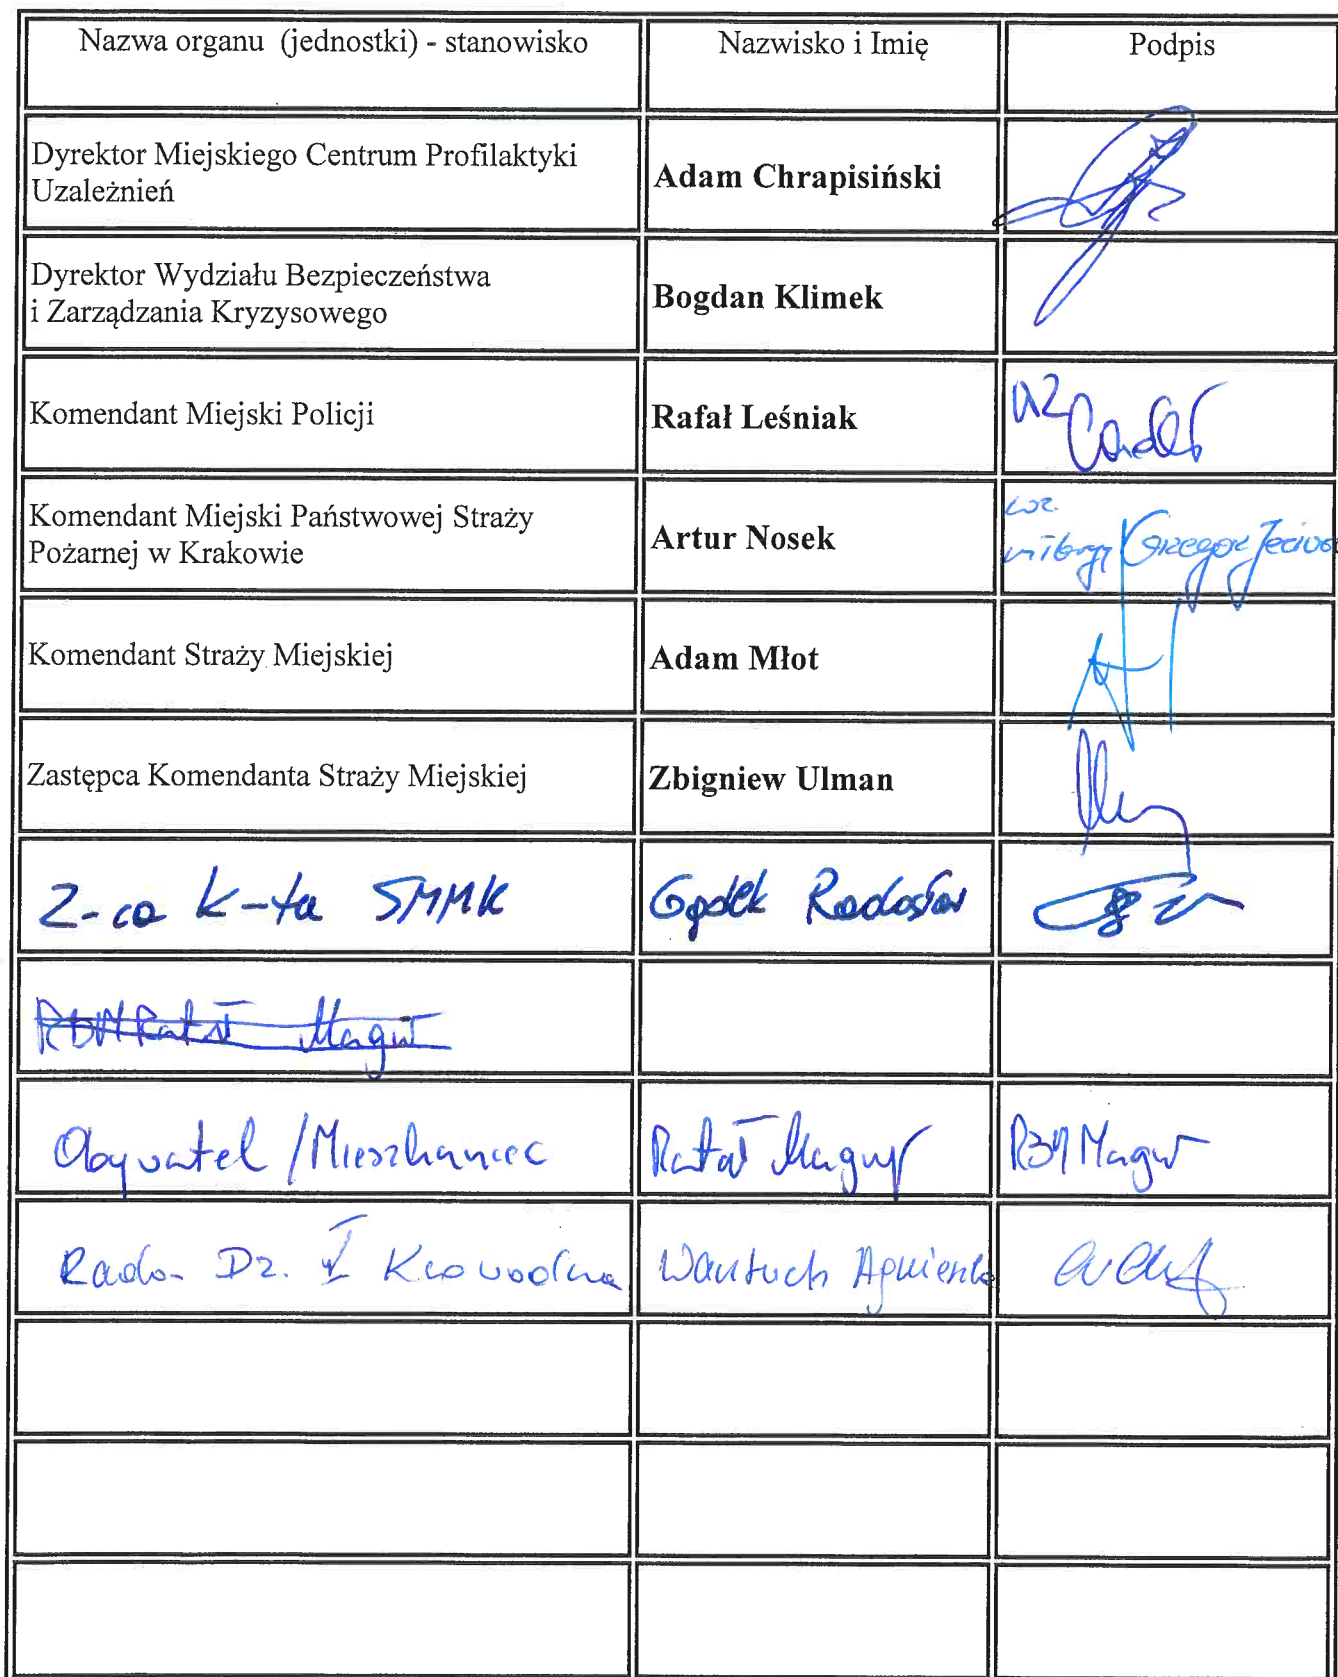 Nazwa organu (jednostki) - stanowisko
Nazwisko i Imię
Podpis
Dyrektor Miejskiego Centrum Profilaktyki
Uzależnień
Adam Chrapisiński
Dyrektor Wydziału Bezpieczeństwa
i Zarządzania Kryzysowego
Bogdan Klimek
Komendant Miejski Policji
Rafał Leśniak
wz
Komendant Miejski Państwowej Straży
Pożarnej w Krakowie
Artur Nosek
wz.
Grzegorz
Komendant Straży Miejskiej
Adam Młot
Zastępca Komendanta Straży Miejskiej
Zbigniew Ulman
Z-ca k-ta SMMK
Radosław
Rafał
Obywatel / Mieszkaniec
Rafał Magur
Magur
Rada Dz. V Krowodrza
Wantuch Agnieszka